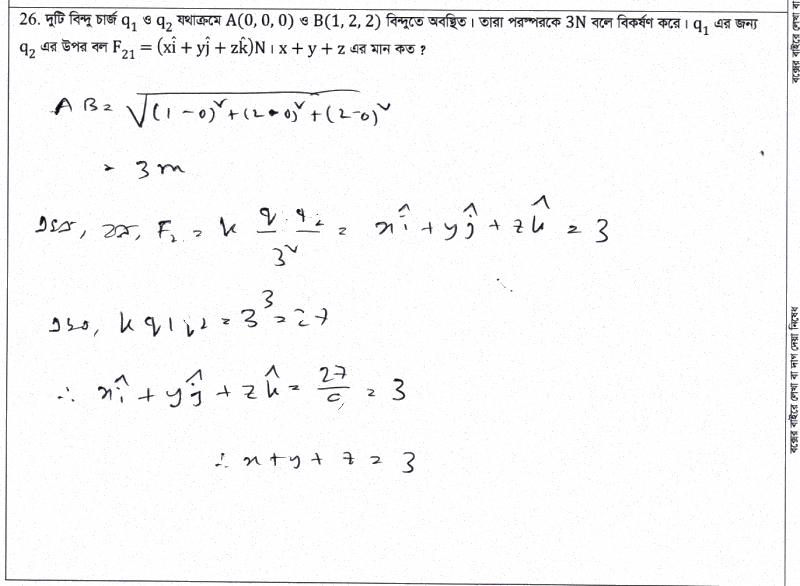 26. দুটি বিন্দু চার্জ q₁ ও q₂ যথাক্রমে A(0, 0, 0) ও B(1, 2, 2) বিন্দুতে অবস্থিত। তারা পরস্পরকে 3N বলে বিকর্ষণ করে। q₁ এর জন্য
q₂ এর উপর বল F₂₁ = (xî + yĵ + zk̂)N। x + y + z এর মান কত ?
AB = √((1-0)² + (2-0)² + (2-0)²)
= 3m
বল, F₂ = k q₁q₂/3² = xî + yĵ + zk̂ = 3
k q₁q₂ = 3³ = 27
∴ xî + yĵ + zk̂ = 27/9 = 3
∴ x + y + z = 3
বক্সের বাইরে লেখা বা দাগ দেয়া নিষেধ